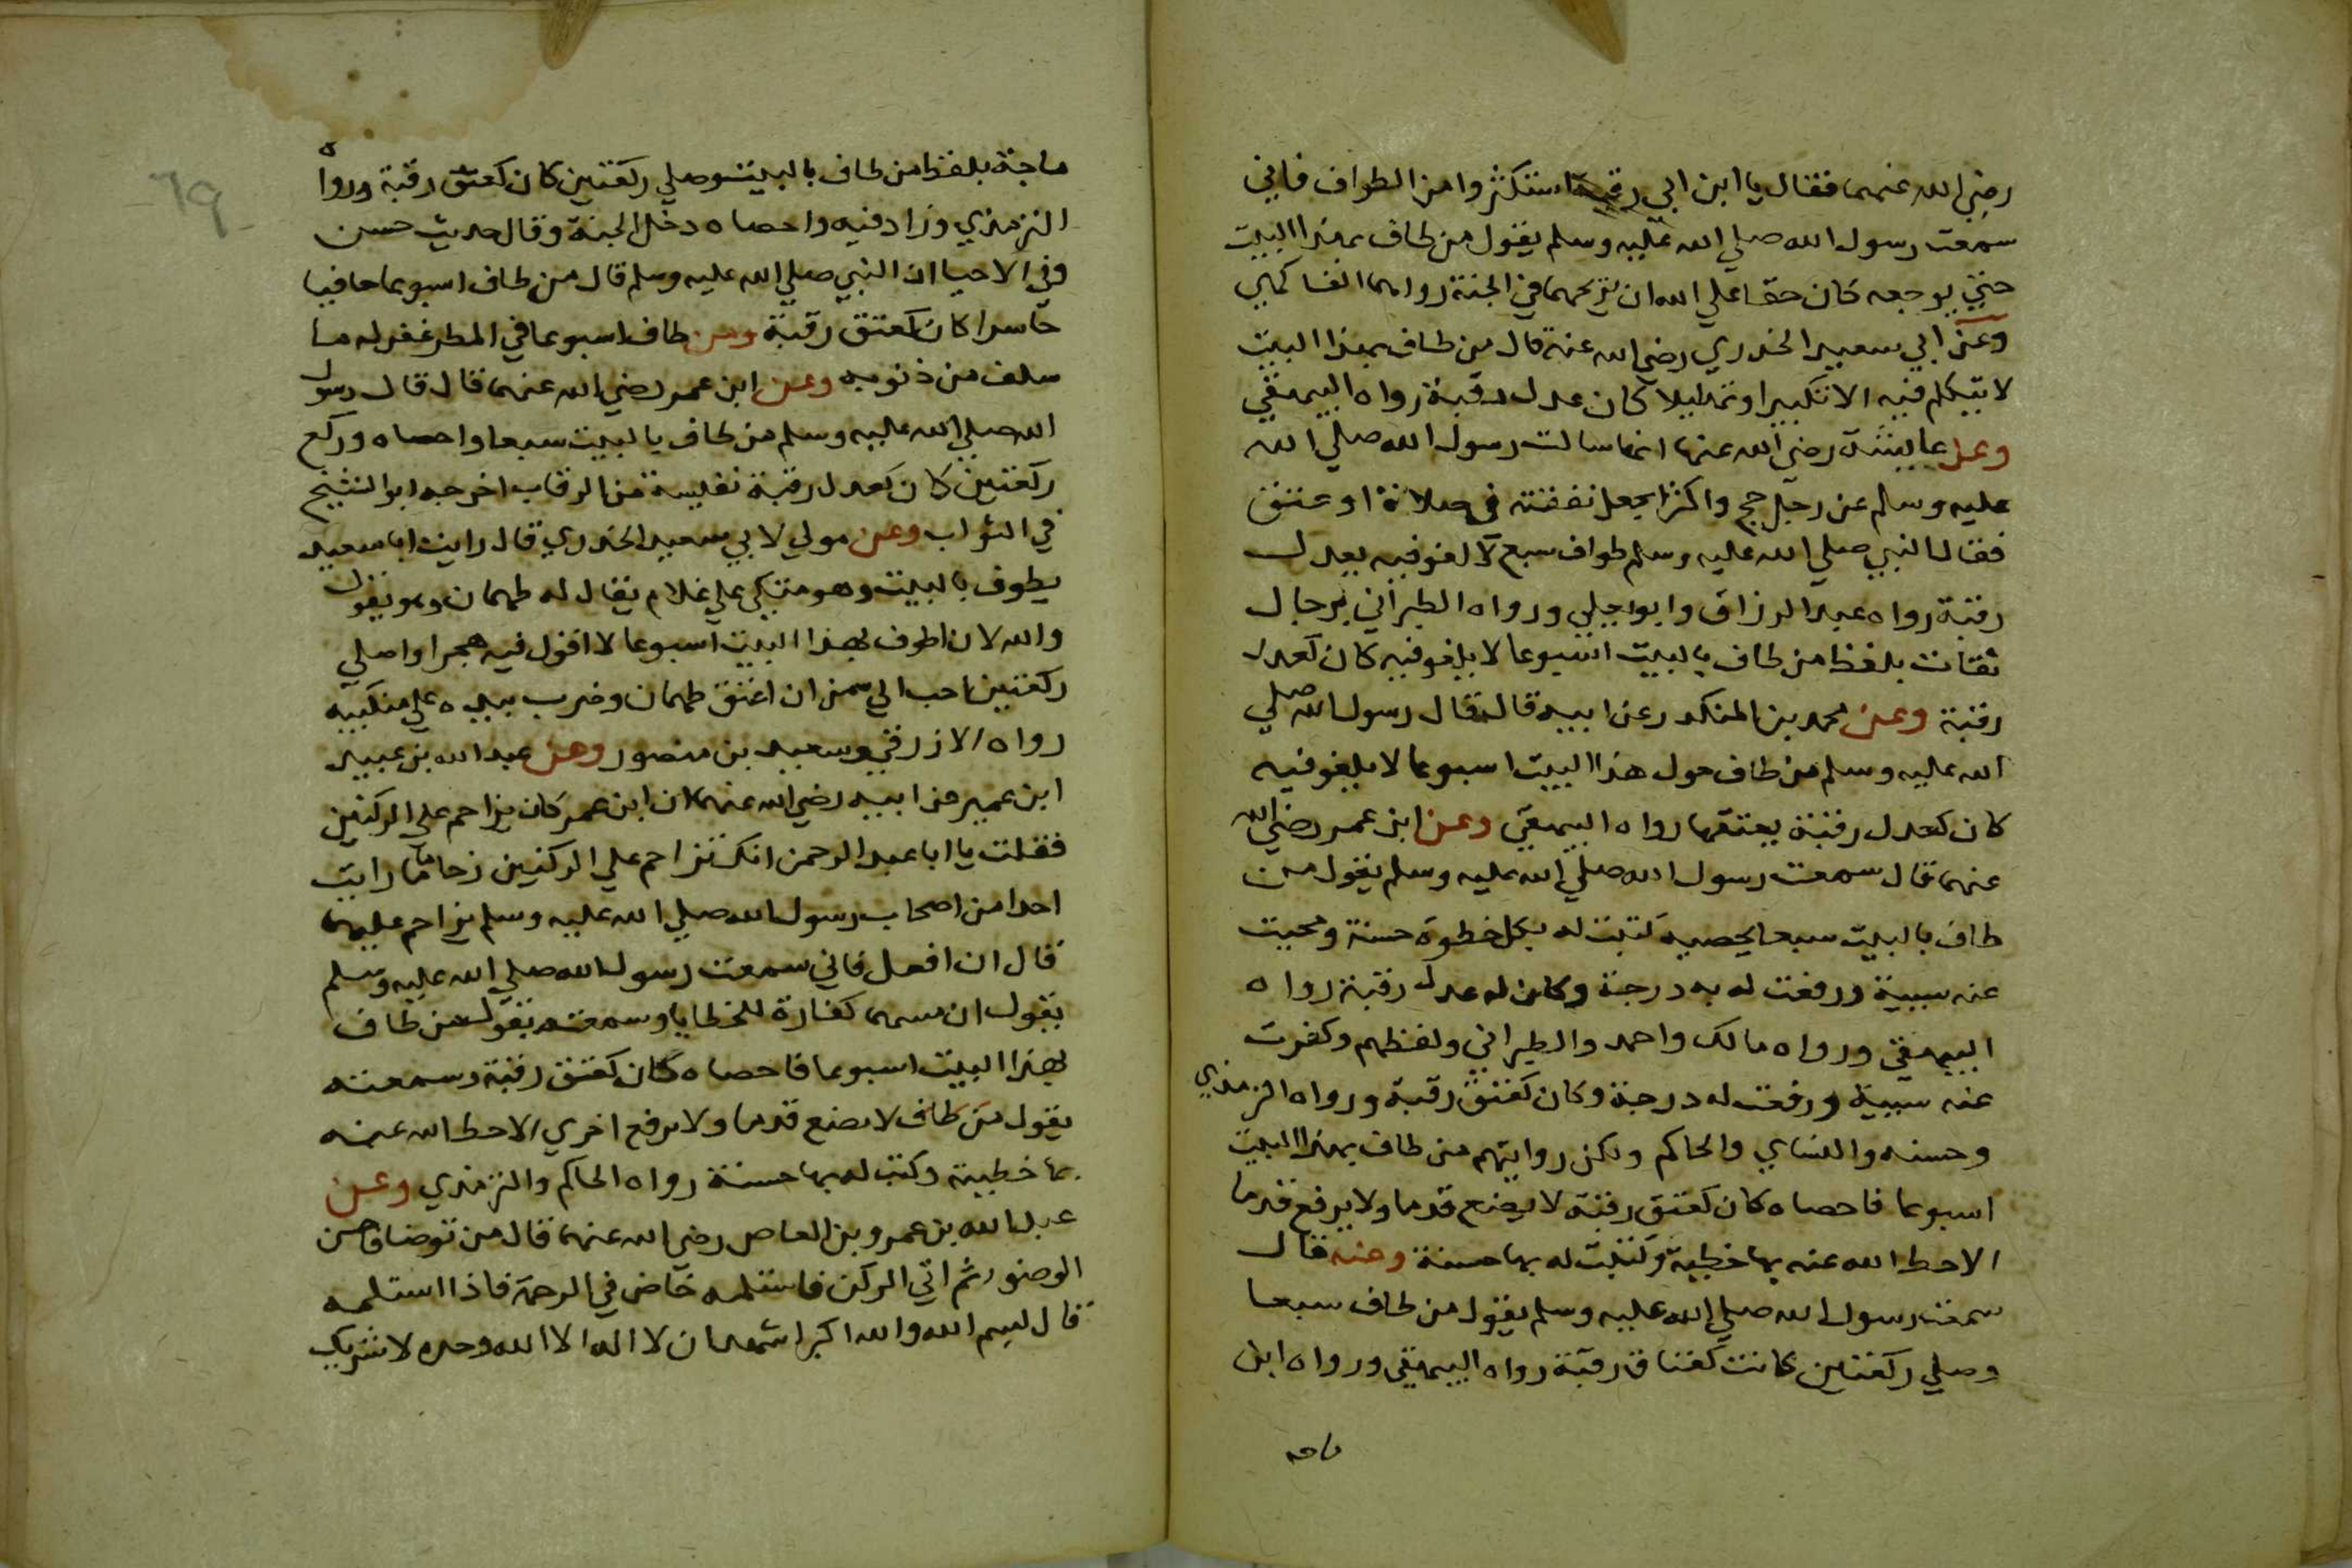 رضي الله عنهما فقال يا ابن ابي رقبة استكثروا من الطواف فاني
سمعت رسول الله صلي الله عليه وسلم يقول من طاف بهذا البيت
حتي يوجعه كان حقا علي الله ان يريحهما في الجنة رواهما الفاكهي
وعن ابي سعيد الخدري رضي الله عنه قال من طاف بهذا البيت
لا يتكلم فيه الا تكبيرا وتهليلا كان عدل رقبة رواه البيهقي
وعن عايشة رضي الله عنها انها سالت رسول الله صلي الله
عليه وسلم عن رجل حج واكثر ايجعل نفقته في صلاة او عتق
فقال النبي صلي الله عليه وسلم طواف سبع لا لغو فيه يعدل
رقبة رواه عبد الرزاق وابو يعلي ورواه الطبراني برجال
ثقات بلفظ من طاف بالبيت اسبوعا لا يلغو فيه كان كعدل
رقبة وعن محمد بن المنكدر عن ابيه قال قال رسول الله صلي
الله عليه وسلم من طاف حول هذا البيت اسبوعا لا يلغو فيه
كان كعدل رقبة يعتقها رواه البيهقي وعن ابن عمر رضي الله
عنهما قال سمعت رسول الله صلي الله عليه وسلم يقول من
طاف بالبيت سبعا يحصيه كتبت له بكل خطوة حسنة ومحيت
عنه سيية ورفعت له به درجة وكان له عدل رقبة رواه
البيهقي ورواه مالك واحمد والطبراني ولفظهم وكفرت
عنه سيية ورفعت له درجة وكان كعتق رقبة ورواه الترمذي
وحسنه والنساي والحاكم ولكن روايتهم من طاف بهذا البيت
اسبوعا فاحصاه كان كعتق رقبة لا يضع قدما ولا يرفع قدما
الا حط الله عنه بها خطية وكتبت له بها حسنة وعنه قال
سمعت رسول الله صلي الله عليه وسلم يقول من طاف سبعا
وصلي ركعتين كانت كعتاق رقبة رواه البيهقي ورواه ابن
ماجه
ماجة بلفظ من طاف بالبيت وصلي ركعتين كان كعتق رقبة ورواه
الترمذي وزاد فيه واحصاه دخل الجنة وقال حديث حسن
وفي الاحيا ان النبي صلي الله عليه وسلم قال من طاف اسبوعا حافيا
حاسرا كان كعتق رقبة ومن طاف اسبوعا في المطر غفر له ما
سلف من ذنوبه وعن ابن عمر رضي الله عنهما قال قال رسول
الله صلي الله عليه وسلم من طاف بالبيت سبعا واحصاه وركع
ركعتين كان كعدل رقبة نفيسة من الرقاب اخرجه ابو الشيخ
في الثواب وعن مولي لابي سعيد الخدري قال رايت ابا سعيد
يطوف بالبيت وهو متكي علي غلام يقال له طهمان وهو يقول
والله لان اطوف بهذا البيت اسبوعا لا اقول فيه هجرا واصلي
ركعتين احب الي من ان اعتق طهمان وضرب بيده علي منكبيه
رواه الازرقي وسعيد بن منصور وعن عبد الله بن عبيد
ابن عمير عن ابيه رضي الله عنهما ان ابن عمر كان يزاحم علي الركنين
فقلت يا ابا عبد الرحمن انك تزاحم علي الركنين زحاما ما رايت
احدا من اصحاب رسول الله صلي الله عليه وسلم يزاحم عليهما
قال ان افعل فاني سمعت رسول الله صلي الله عليه وسلم
يقول ان مسهما كفارة للخطايا وسمعته يقول من طاف
بهذا البيت اسبوعا فاحصاه كان كعتق رقبة وسمعته
يقول من طاف لا يضع قدما ولا يرفع اخري الا حط الله عنه
بها خطيية وكتب له بها حسنة رواه الحاكم والترمذي وعن
عبد الله بن عمرو بن العاص رضي الله عنهما قال من توضا فاحسن
الوضوء ثم اتي الركن فاستلمه خاض في الرحمة فاذا استلمه
قال بسم الله والله اكبر اشهد ان لا اله الا الله وحده لا شريك